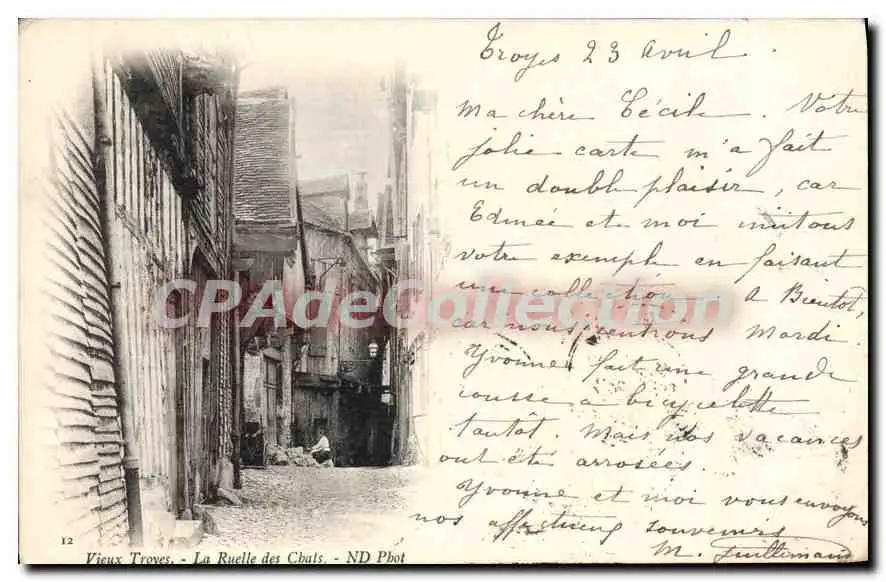 Troyes 23 Avril.
Ma chère Cécile. Votre
jolie carte m'a fait
un double plaisir, car
Edmée et moi imitons
votre exemple en faisant
une collection. A Bientôt,
car nous rentrons Mardi.
Yvonne fait une grande
course à bicyclette
tantôt. Mais nos vacances
ont été arrosées.
Yvonne et moi vous envoyons
nos affectueux souvenirs
M. Guillemain
CPAdeCollection.com
12
Vieux Troyes. - La Ruelle des Chats. - ND Phot